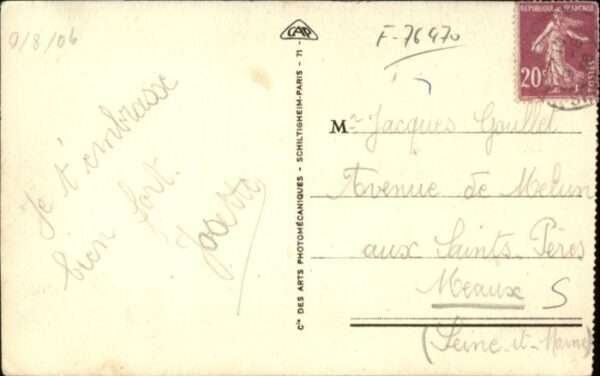 9/8/06
F-76470
CAP
RÉPUBLIQUE FRANÇAISE
20c
Je t'embrasse
bien fort.
Cie DES ARTS PHOTOMÉCANIQUES - SCHILTIGHEIM-PARIS - 71 -
Mr Jacques Goullet
Avenue de Melun
aux Saints Pères
Meaux S
(Seine-et-Marne)